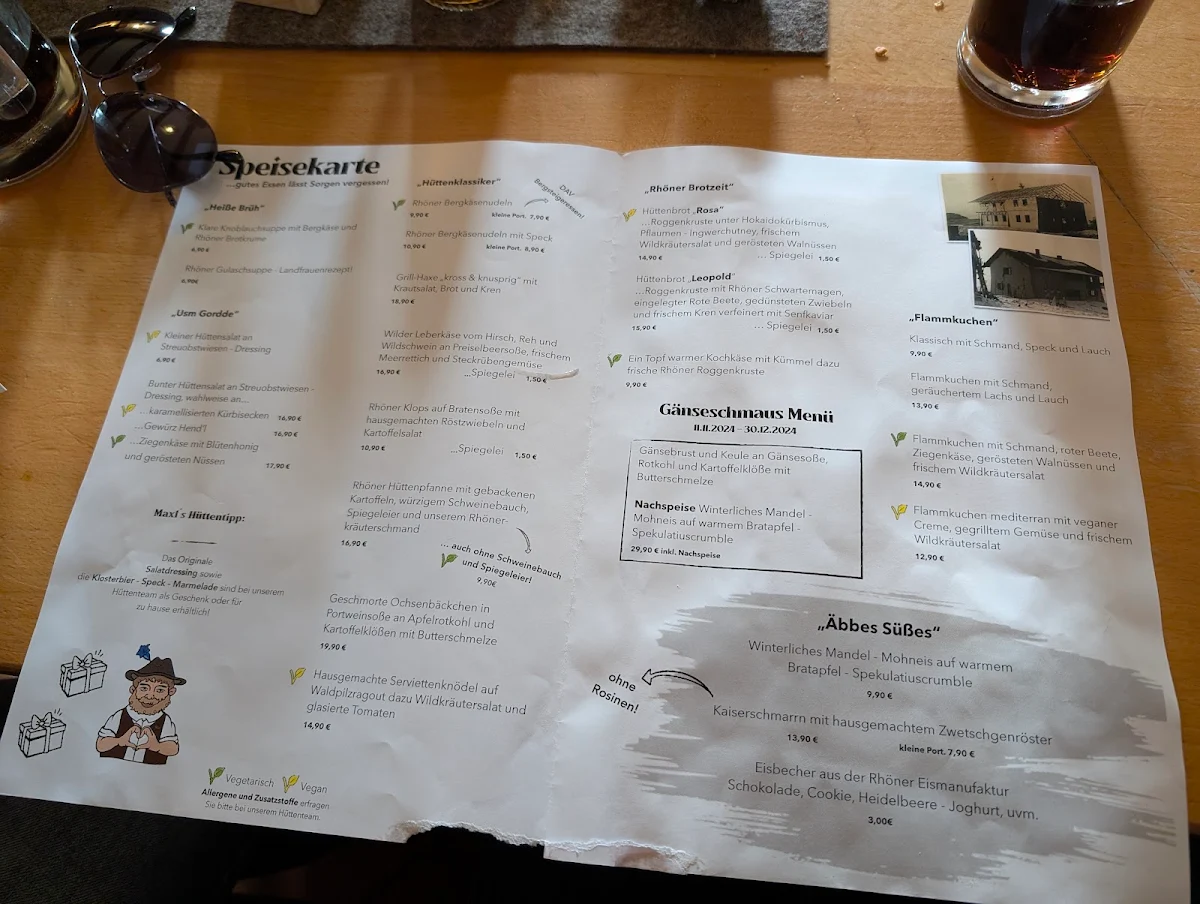 Speisekarte
...gutes Essen lässt Sorgen vergessen!
„Heiße Brüh“
Klare Knoblauchsuppe mit Bergkäse und
Rhöner Brotkrume
6,90 €
Rhöner Gulaschsuppe - Landfrauenrezept!
6,90€
„Usm Gordde“
Kleiner Hüttensalat an
Streuobstwiesen - Dressing
6,90 €
Bunter Hüttensalat an Streuobstwiesen -
Dressing, wahlweise an...
...karamellisierten Kürbisecken 16,90 €
...Gewürz Hend'l 16,90 €
...Ziegenkäse mit Blütenhonig
und gerösteten Nüssen 17,90 €
Maxl s Hüttentipp:
Das Originale
Salatdressing sowie
die Klosterbier - Speck - Marmelade sind bei unserem
Hüttenteam als Geschenk oder für
zu hause erhältlich!
Vegetarisch Vegan
Allergene und Zusatzstoffe erfragen
Sie bitte bei unserem Hüttenteam.
„Hüttenklassiker“
DAV
Bergsteigeressen!
Rhöner Bergkäsenudeln
9,90 € kleine Port. 7,90 €
Rhöner Bergkäsenudeln mit Speck
10,90 € kleine Port. 8,90 €
Grill-Haxe „kross & knusprig“ mit
Krautsalat, Brot und Kren
18,90 €
Wilder Leberkäse vom Hirsch, Reh und
Wildschwein an Preiselbeersoße, frischem
Meerrettich und Steckrübengemüse
16,90 € ...Spiegelei 1,50 €
Rhöner Klops auf Bratensoße mit
hausgemachten Röstzwiebeln und
Kartoffelsalat
10,90 € ...Spiegelei 1,50 €
Rhöner Hüttenpfanne mit gebackenen
Kartoffeln, würzigem Schweinebauch,
Spiegeleier und unserem Rhöner-
kräuterschmand
16,90 €
... auch ohne Schweinebauch
und Spiegeleier!
9,90€
Geschmorte Ochsenbäckchen in
Portweinsoße an Apfelrotkohl und
Kartoffelklößen mit Butterschmelze
19,90 €
Hausgemachte Serviettenknödel auf
Waldpilzragout dazu Wildkräutersalat und
glasierte Tomaten
14,90 €
„Rhöner Brotzeit“
Hüttenbrot „Rosa“
...Roggenkruste unter Hokaidokürbismus,
Pflaumen - Ingwerchutney, frischem
Wildkräutersalat und gerösteten Walnüssen
14,90 € ... Spiegelei 1,50 €
Hüttenbrot „Leopold“
...Roggenkruste mit Rhöner Schwartemagen,
eingelegter Rote Beete, gedünsteten Zwiebeln
und frischem Kren verfeinert mit Senfkaviar
15,90 € ... Spiegelei 1,50 €
Ein Topf warmer Kochkäse mit Kümmel dazu
frische Rhöner Roggenkruste
9,90 €
Gänseschmaus Menü
11.11.2024 - 30.12.2024
Gänsebrust und Keule an Gänsesoße,
Rotkohl und Kartoffelklöße mit
Butterschmelze
Nachspeise Winterliches Mandel -
Mohneis auf warmem Bratapfel -
Spekulatiuscrumble
29,90 € inkl. Nachspeise
„Flammkuchen“
Klassisch mit Schmand, Speck und Lauch
9,90 €
Flammkuchen mit Schmand,
geräuchertem Lachs und Lauch
13,90 €
Flammkuchen mit Schmand, roter Beete,
Ziegenkäse, gerösteten Walnüssen und
frischem Wildkräutersalat
14,90 €
Flammkuchen mediterran mit veganer
Creme, gegrilltem Gemüse und frischem
Wildkräutersalat
12,90 €
„Äbbes Süßes“
Winterliches Mandel - Mohneis auf warmem
Bratapfel - Spekulatiuscrumble
9,90 €
ohne
Rosinen!
Kaiserschmarrn mit hausgemachtem Zwetschgenröster
13,90 € kleine Port. 7,90 €
Eisbecher aus der Rhöner Eismanufaktur
Schokolade, Cookie, Heidelbeere - Joghurt, uvm.
3,00€